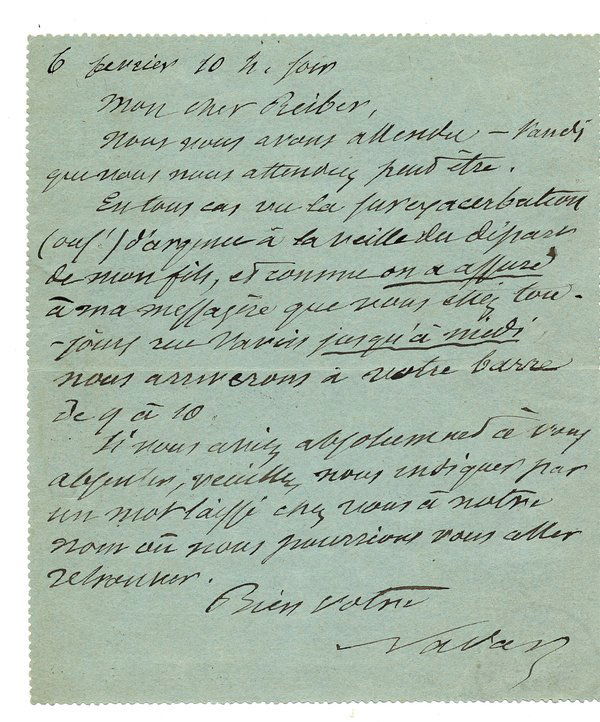 6 fevrier 10 h. soir
Mon cher Reiber,
Nous vous avons attendu — tandis
que vous nous attendiez peut être.
En tous cas vu la surexacerbation
(ouf!) d'argence à la veille du départ
de mon fils, et comme on a assuré
à ma messagère que vous étiez tou-
-jours rue Vavin jusqu'à midi,
nous arriverons à votre barre
de 9 à 10.
Si vous aviez absolument à vous
absenter, veuillez nous indiquer par
un mot laissé chez vous à notre
nom où nous pourrions vous aller
retrouver.
Bien votre
Nadar